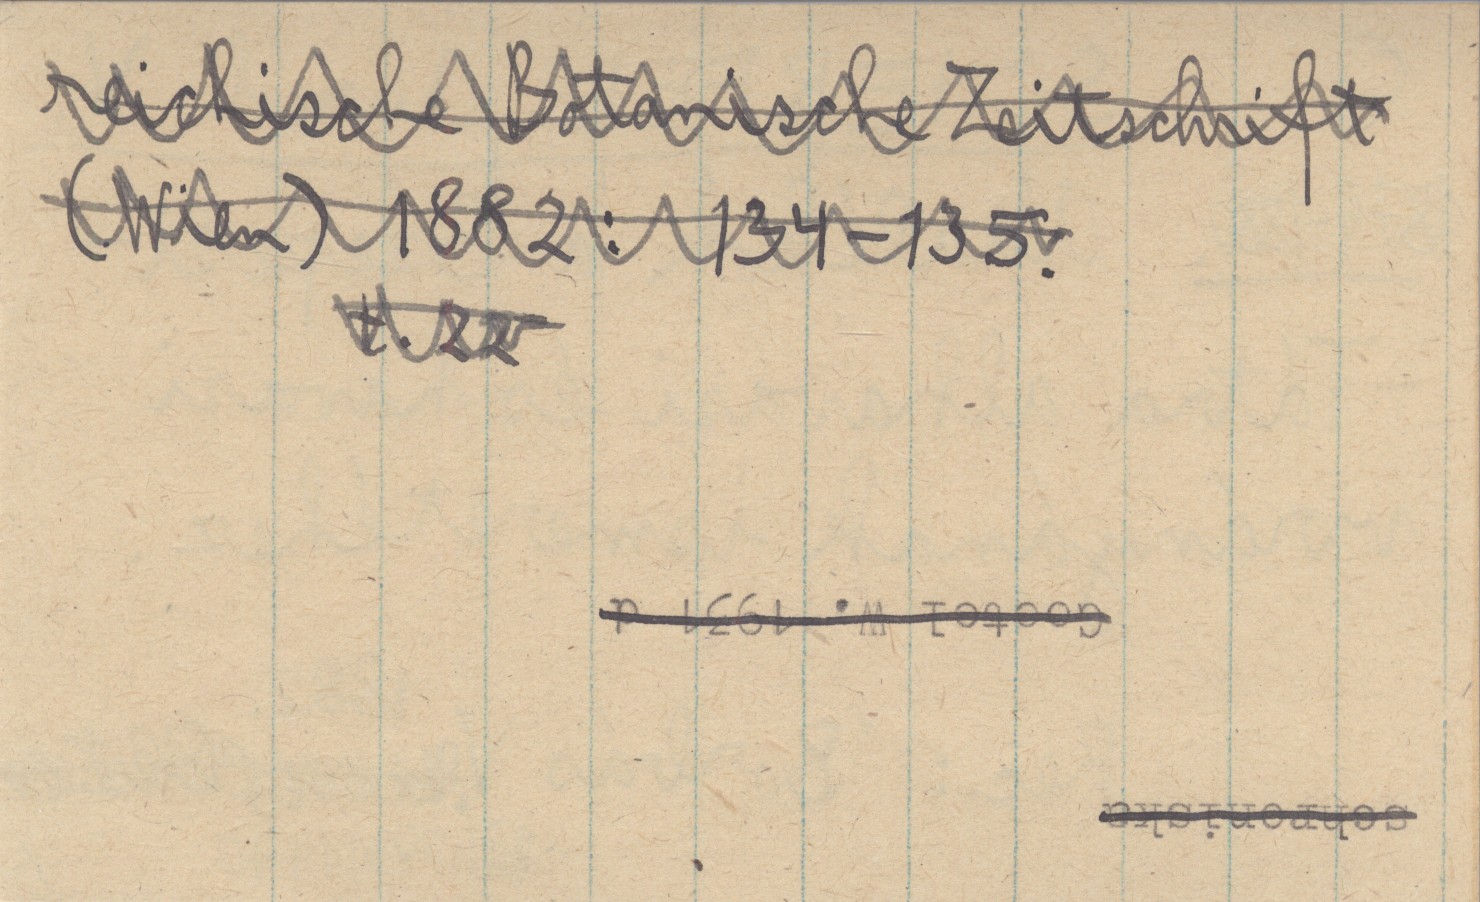 reichische Botanische Zeitschrift
(Wien) 1882: 134-135.
t. 22
Goetel W. 1931 d
schroniska